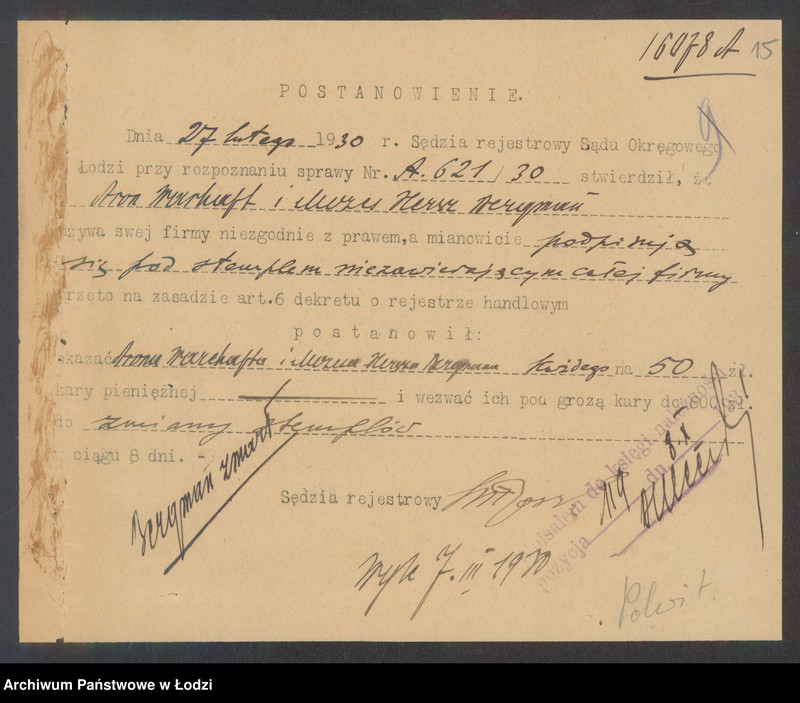 16078 A 15
POSTANOWIENIE.
Dnia 27 lutego 1930 r. Sędzia rejestrowy Sądu Okręgowego
Łodzi przy rozpoznaniu sprawy Nr. A. 621/30 stwierdził, że
Aron Warhaft i Mozes Hersz Bergman
żywa swej firmy niezgodnie z prawem, a mianowicie podpisują
się pod stemplem niezawierającym całej firmy
rzeto na zasadzie art. 6 dekretu o rejestrze handlowym
postanowił:
skazać Arona Warchafta i Mozesa Hersza Bergmana każdego na 50 zł.
kary pieniężnej i wezwać ich pod grozą kary do 600 zł.
do zmiany stemplów
ciągu 8 dni. -
Bergman zmarł
Sędzia rejestrowy
Wpisałem do księgi należności
pozycja 119 dn 8.X
Wyk 7.III 1930
Pokwit.
Archiwum Państwowe w Łodzi